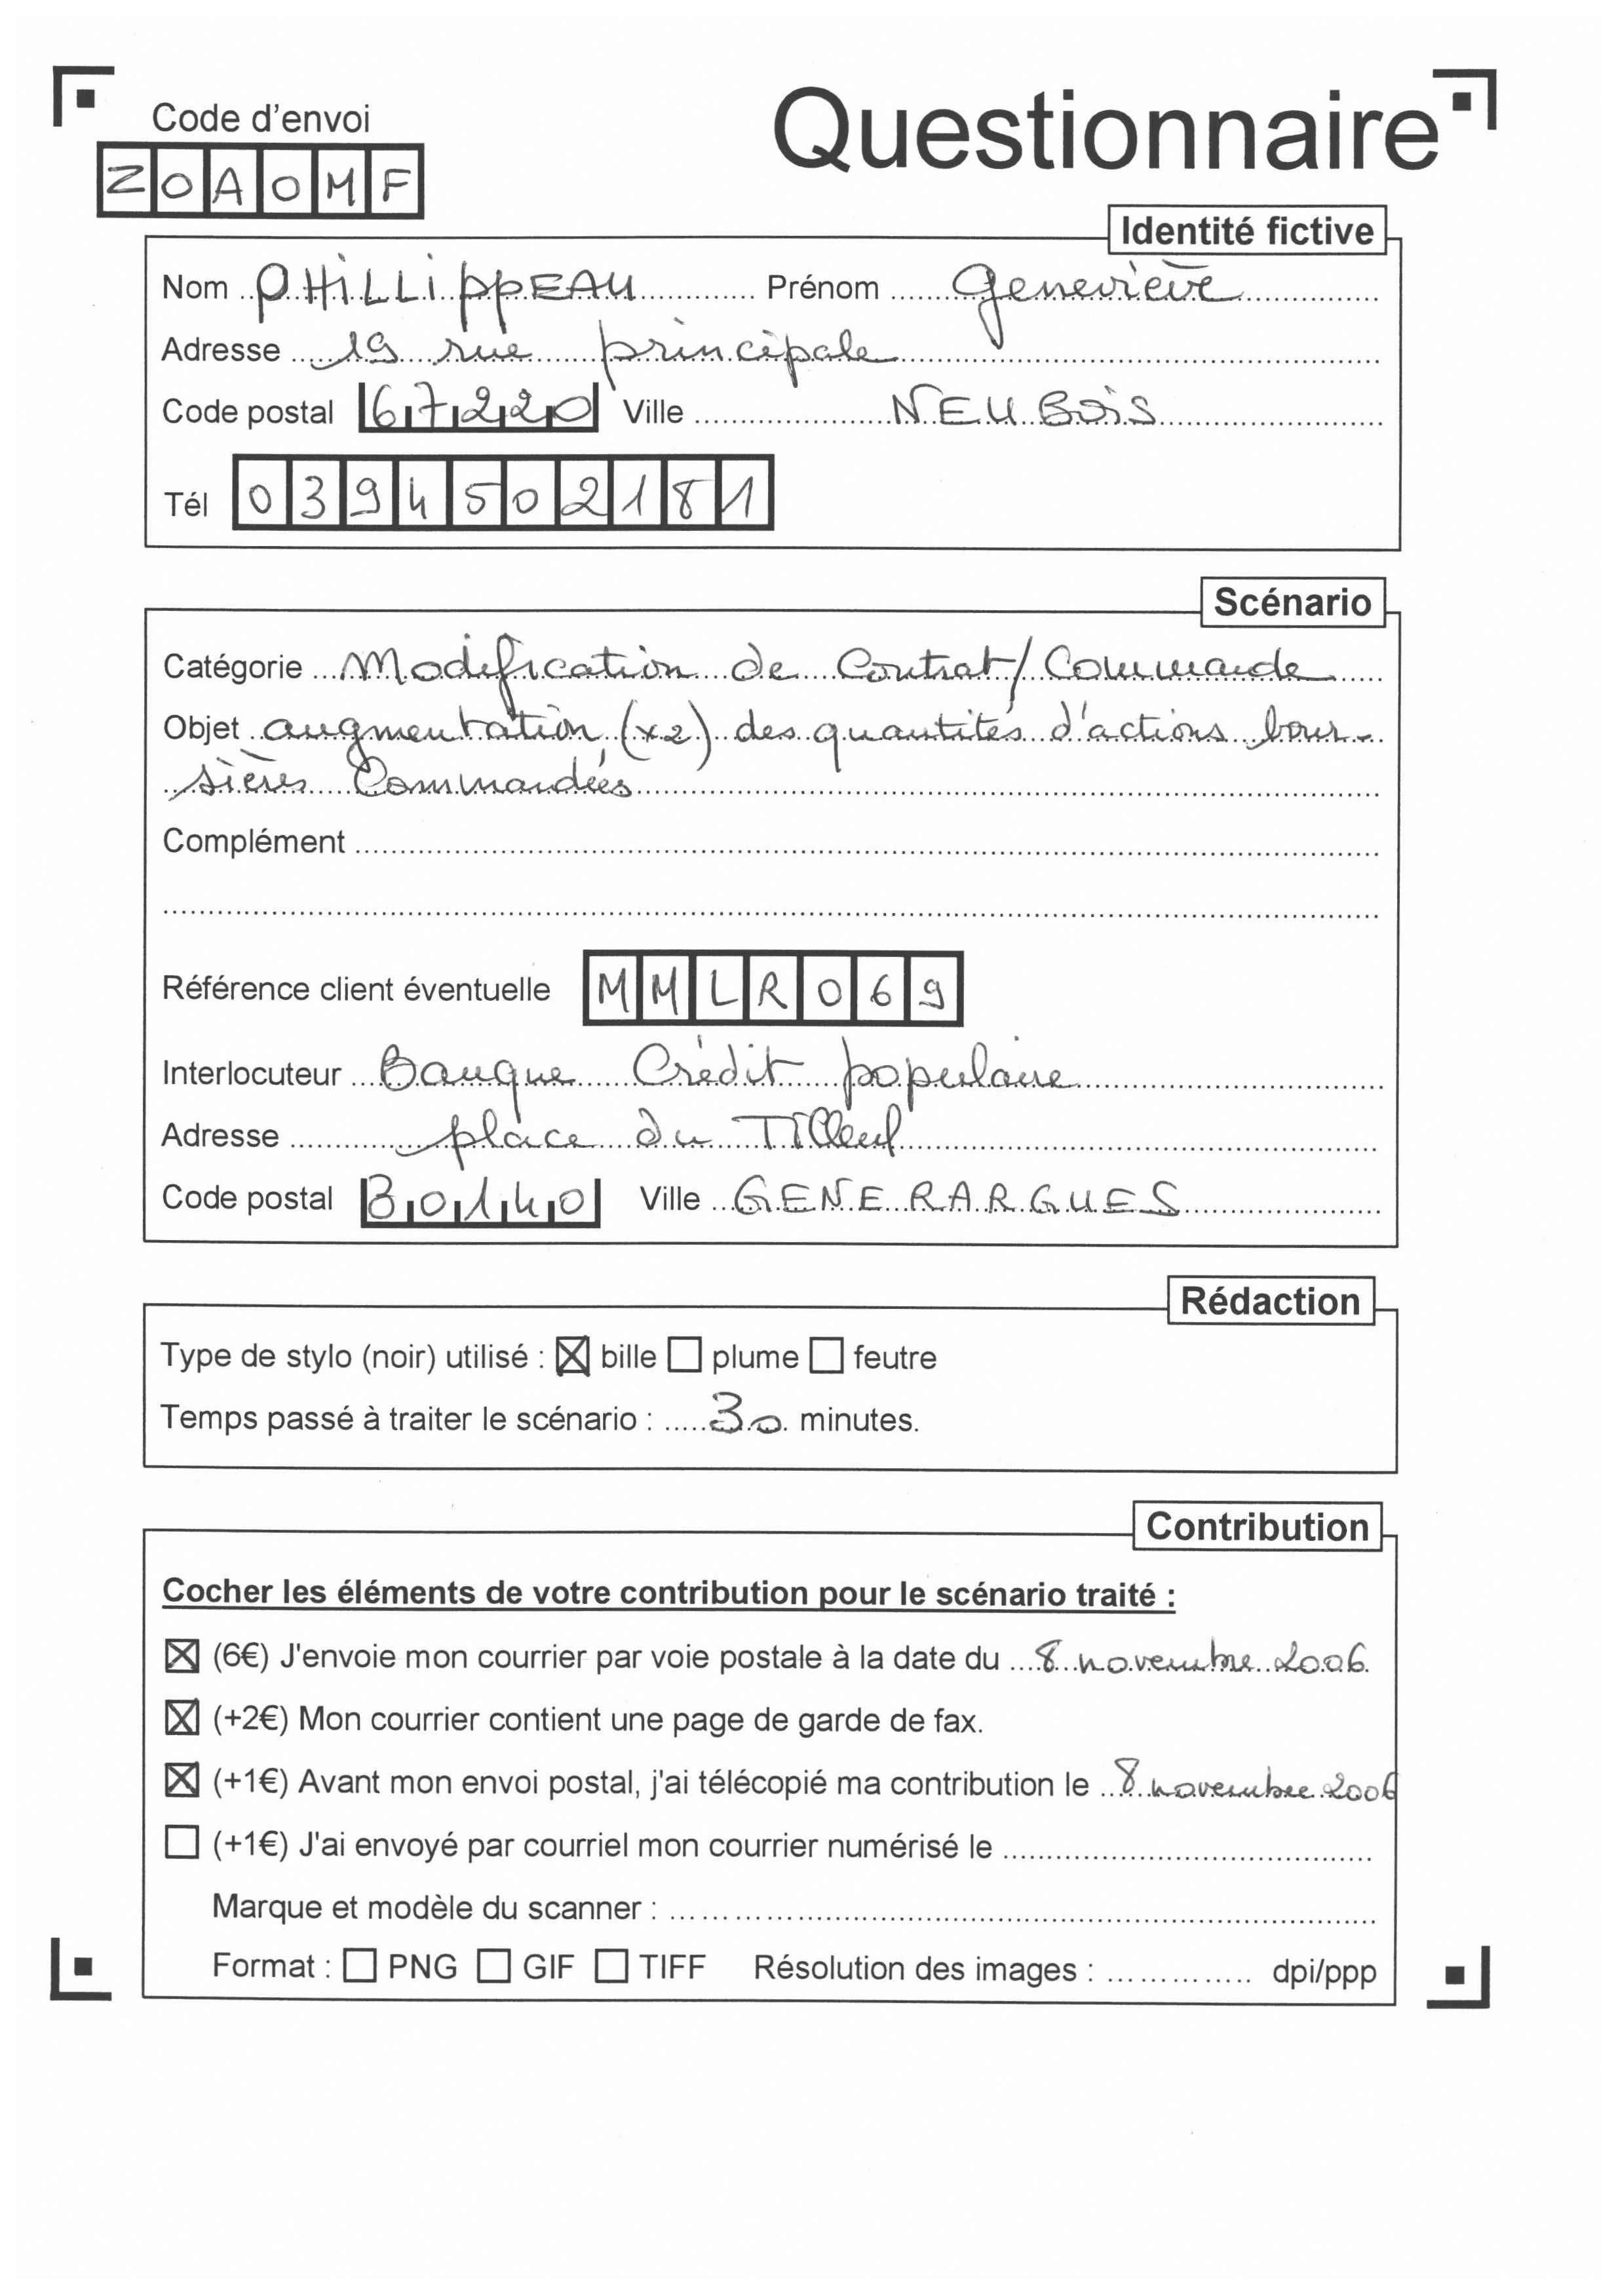 Code d'envoi
Questionnaire
ZOAOMF
Identité fictive
Nom PHiLLippEAU Prénom Geneviève
Adresse 19 rue principale
Code postal 67220 Ville NEUBOiS
Tél 0394502181
Scénario
Catégorie Modification de Contrat/Commande
Objet augmentation (x2) des quantités d'actions bour-
sières Commandées
Complément
Référence client éventuelle MMLR069
Interlocuteur Banque Crédit populaire
Adresse place du Tilleul
Code postal 30140 Ville GENERARGUES
Rédaction
Type de stylo (noir) utilisé : ☒ bille ☐ plume ☐ feutre
Temps passé à traiter le scénario : 30 minutes.
Contribution
Cocher les éléments de votre contribution pour le scénario traité :
☒ (6€) J'envoie mon courrier par voie postale à la date du 8 novembre 2006
☒ (+2€) Mon courrier contient une page de garde de fax.
☒ (+1€) Avant mon envoi postal, j'ai télécopié ma contribution le 8 novembre 2006
☐ (+1€) J'ai envoyé par courriel mon courrier numérisé le
Marque et modèle du scanner :
Format : ☐ PNG ☐ GIF ☐ TIFF Résolution des images : dpi/ppp